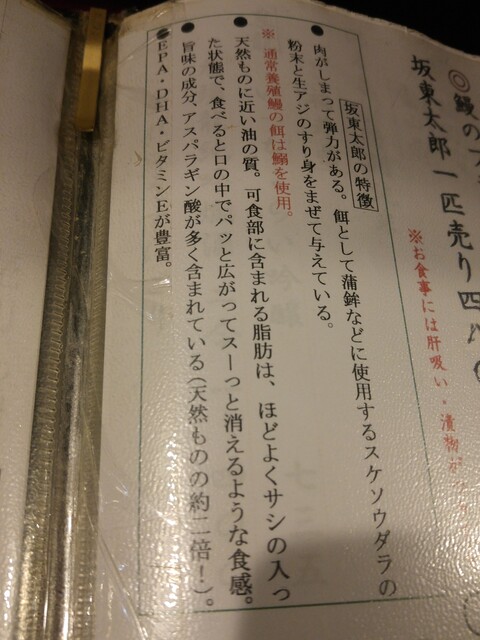 ◎鰻の
坂東太郎一匹売り 四八
※お食事には肝吸い・漬物が
坂東太郎の特徴
● 肉がしまって弾力がある。餌として蒲鉾などに使用するスケソウダラの
粉末と生アジのすり身をまぜて与えている。
※ 通常養殖鰻の餌は鰯を使用。
● 天然ものに近い油の質。可食部に含まれる脂肪は、ほどよくサシの入っ
た状態で、食べると口の中でパッと広がってスーっと消えるような食感。
● 旨味の成分、アスパラギン酸が多く含まれている(天然ものの約二倍!)。
● EPA・DHA・ビタミンEが豊富。